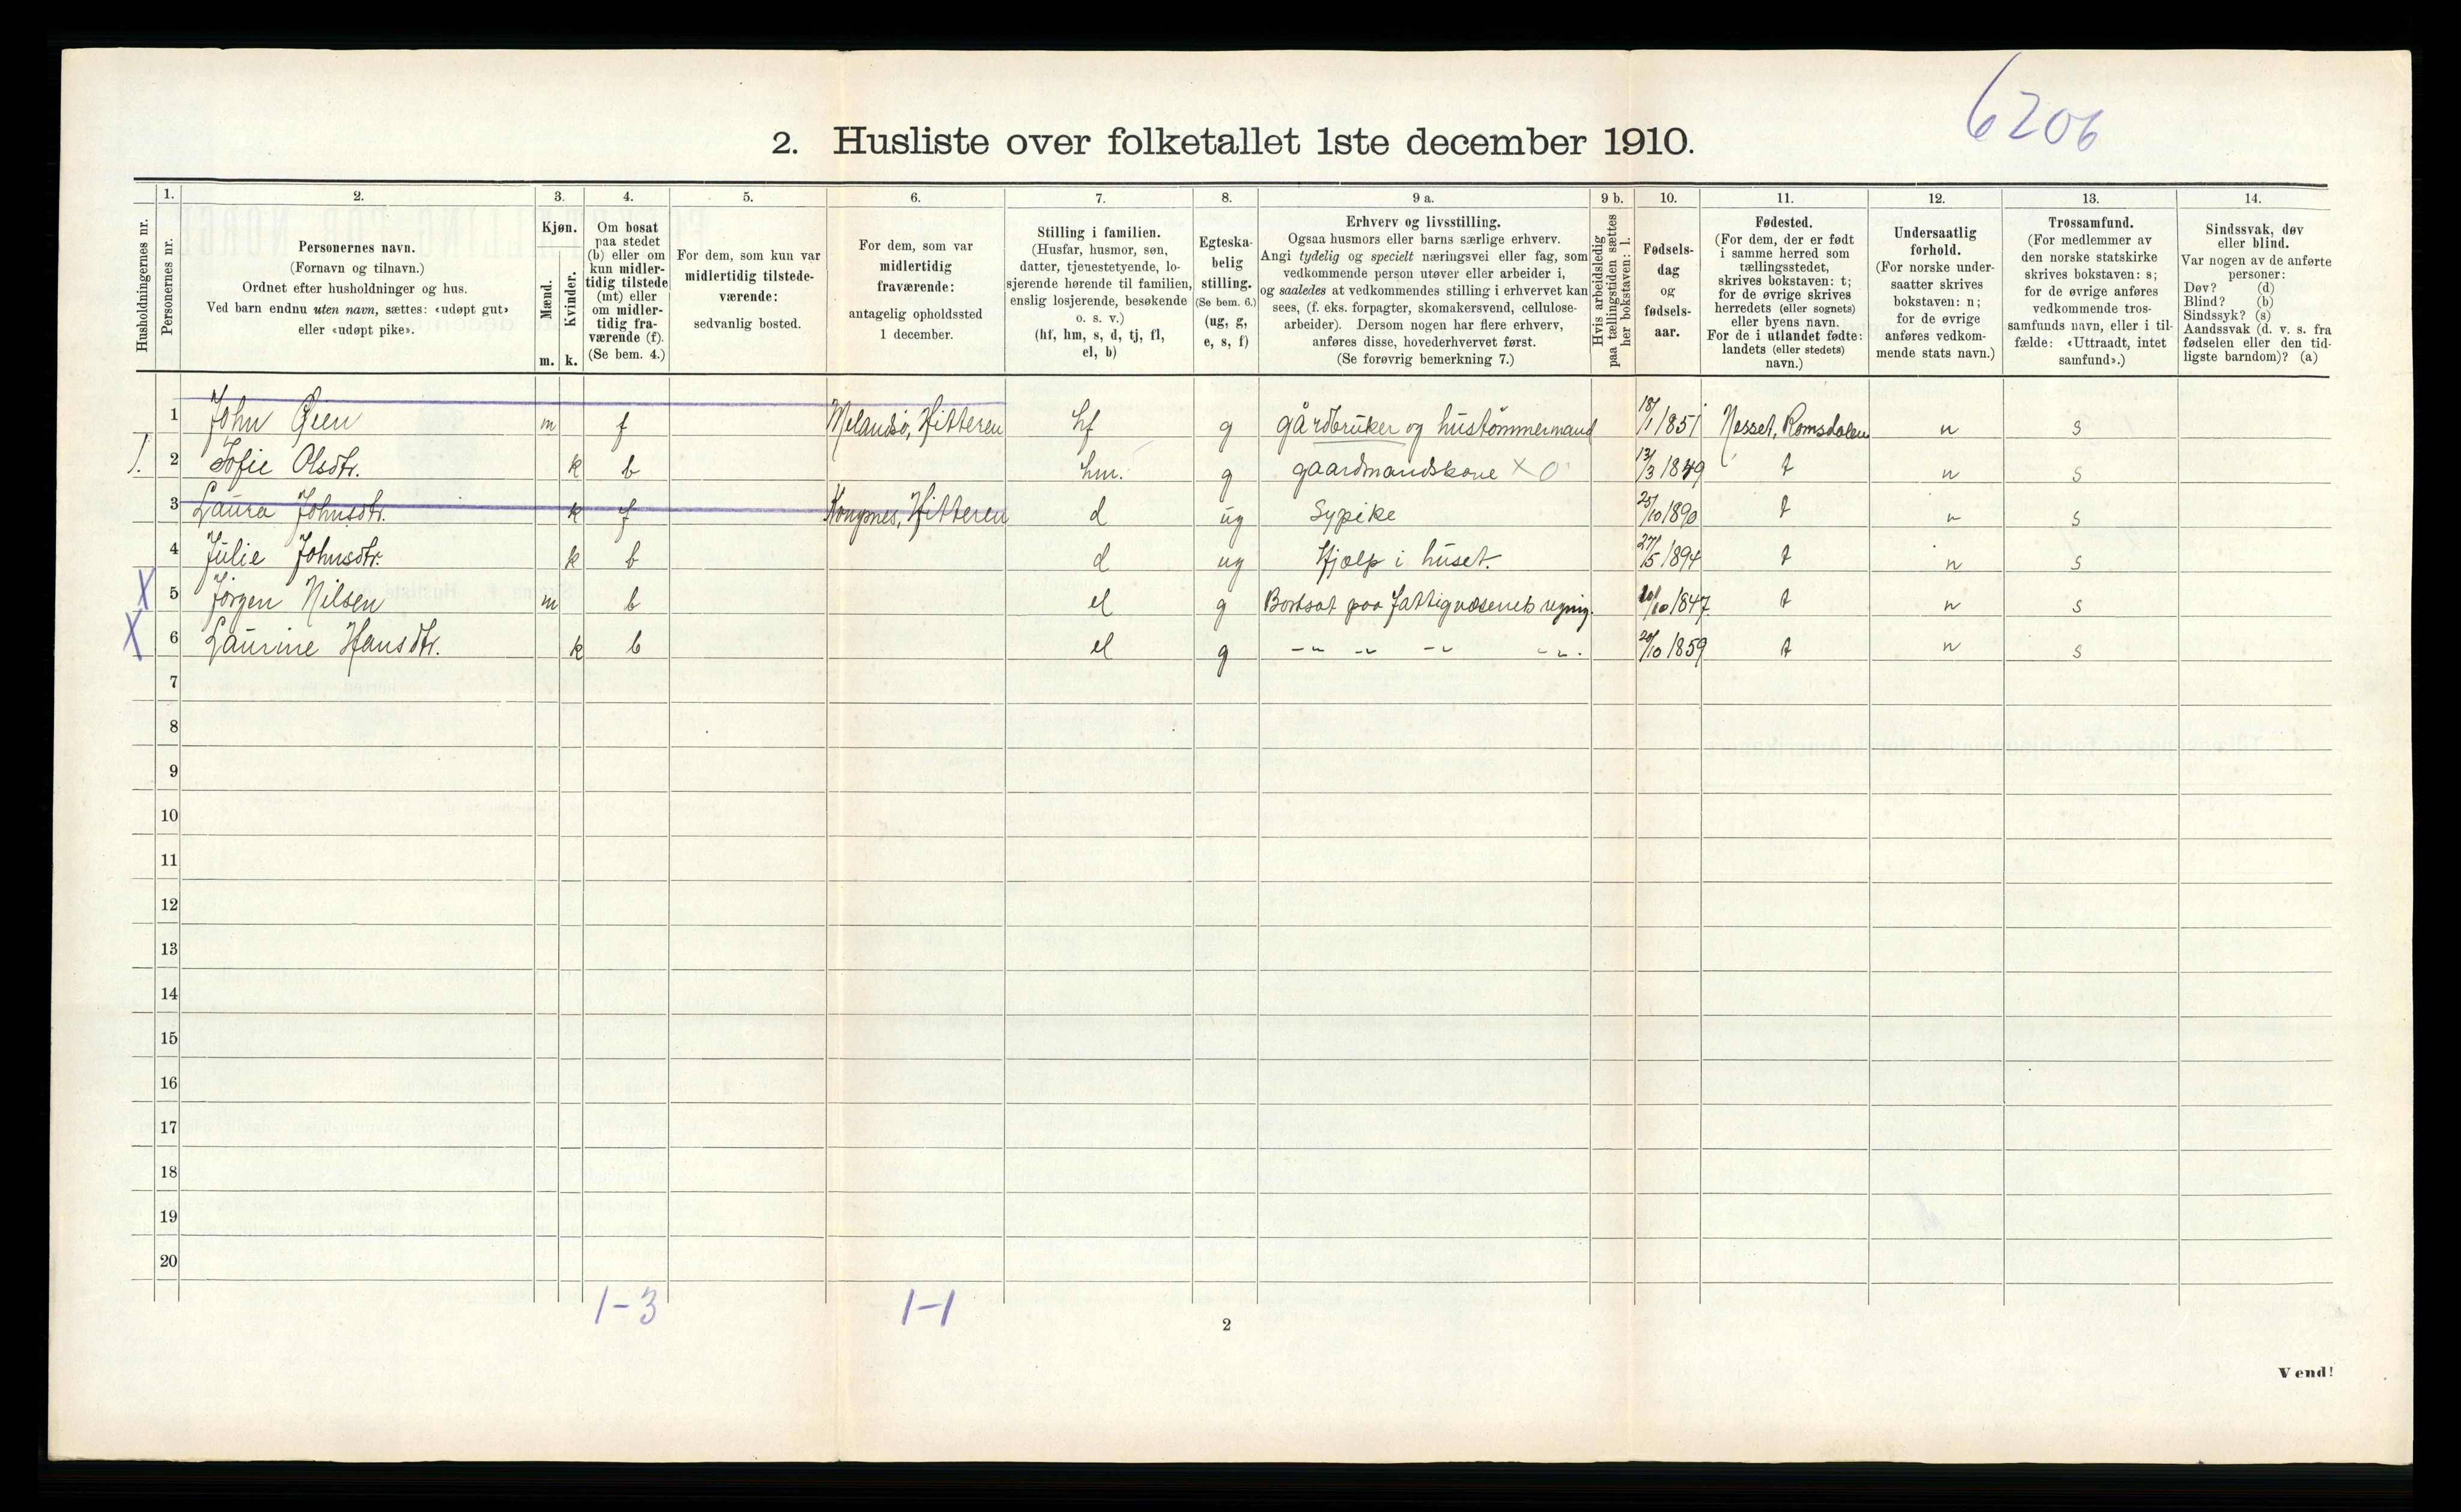 6206
2. Husliste over folketallet 1ste december 1910.
Husholdningernes nr.
1.
Personernes nr.
2.
Personernes navn.
(Fornavn og tilnavn.)
Ordnet efter husholdninger og hus.
Ved barn endnu uten navn, sættes: «udøpt gut»
eller «udøpt pike».
3.
Kjøn.
Mænd.
Kvinder.
m. k.
4.
Om bosat
paa stedet
(b) eller om
kun midler-
tidig tilstede
(mt) eller
om midler-
tidig fra-
værende (f).
(Se bem. 4.)
5.
For dem, som kun var
midlertidig tilstede-
værende:
sedvanlig bosted.
6.
For dem, som var
midlertidig
fraværende:
antagelig opholdssted
1 december.
7.
Stilling i familien.
(Husfar, husmor, søn,
datter, tjenestetyende, lo-
sjerende hørende til familien,
enslig losjerende, besøkende
o. s. v.)
(hf, hm, s, d, tj, fl,
el, b)
8.
Egteska-
belig
stilling.
(Se bem. 6.)
(ug, g,
e, s, f)
9 a.
Erhverv og livsstilling.
Ogsaa husmors eller barns særlige erhverv.
Angi tydelig og specielt næringsvei eller fag, som
vedkommende person utøver eller arbeider i,
og saaledes at vedkommendes stilling i erhvervet kan
sees, (f. eks. forpagter, skomakersvend, cellulose-
arbeider). Dersom nogen har flere erhverv,
anføres disse, hovederhvervet først.
(Se forøvrig bemerkning 7.)
9 b.
Hvis arbeidsledig
paa tællingstiden sættes
her bokstaven: l.
10.
Fødsels-
dag
og
fødsels-
aar.
11.
Fødested.
(For dem, der er født
i samme herred som
tællingsstedet,
skrives bokstaven: t;
for de øvrige skrives
herredets (eller sognets)
eller byens navn.
For de i utlandet fødte:
landets (eller stedets)
navn.)
12.
Undersaatlig
forhold.
(For norske under-
saatter skrives
bokstaven: n;
for de øvrige
anføres vedkom-
mende stats navn.)
13.
Trossamfund.
(For medlemmer av
den norske statskirke
skrives bokstaven: s;
for de øvrige anføres
vedkommende tros-
samfunds navn, eller i til-
fælde: «Uttraadt, intet
samfund».)
14.
Sindssvak, døv
eller blind.
Var nogen av de anførte
personer:
Døv? (d)
Blind? (b)
Sindssyk? (s)
Aandssvak (d. v. s. fra
fødselen eller den tid-
ligste barndom)? (a)
1 John Øien m f Melandsø, Hitteren hf g gårdbruker og hustømmermand 18/1 1851 Nesset, Romsdalen n s
1. 2 Sofie Olsdtr. k b hm. g gaardmandskone X 0 13/3 1849 t n s
3 Laura Johnsdtr. k f Hitteren d ug Sypike 25/10 1890 t n s
4 Julie Johnsdtr. k b d ug Hjælp i huset. 27/5 1894 t n s
X 5 Jörgen Nilsen m b el g Bortsat paa Fattigvæsenets regning. /10 1847 t n s
X 6 Laurine Hansdtr. k b el g -"- -"- -"- -"-. 20/10 1859 t n s
7
8
9
10
11
12
13
14
15
16
17
18
19
20
1-3 1-1
2
Vend!